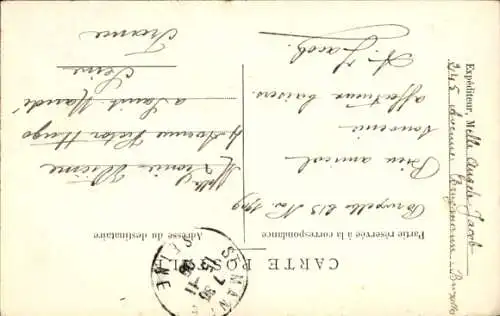 CARTE POSTALE
Partie réservée à la correspondance
Adresse du destinataire
Bruxelles le 15 Nov. 1909
Bien amical
souvenir
affectueux baisers
A. Jacob
Mlle
Léonie
4 Avenue Victor Hugo
à Saint Mandé
Seine
France
Expéditeur, Melle Angèle Jacob
243 Avenue Brugmann Bruxelles
ST MAN
15 7 30
16 11
SEINE